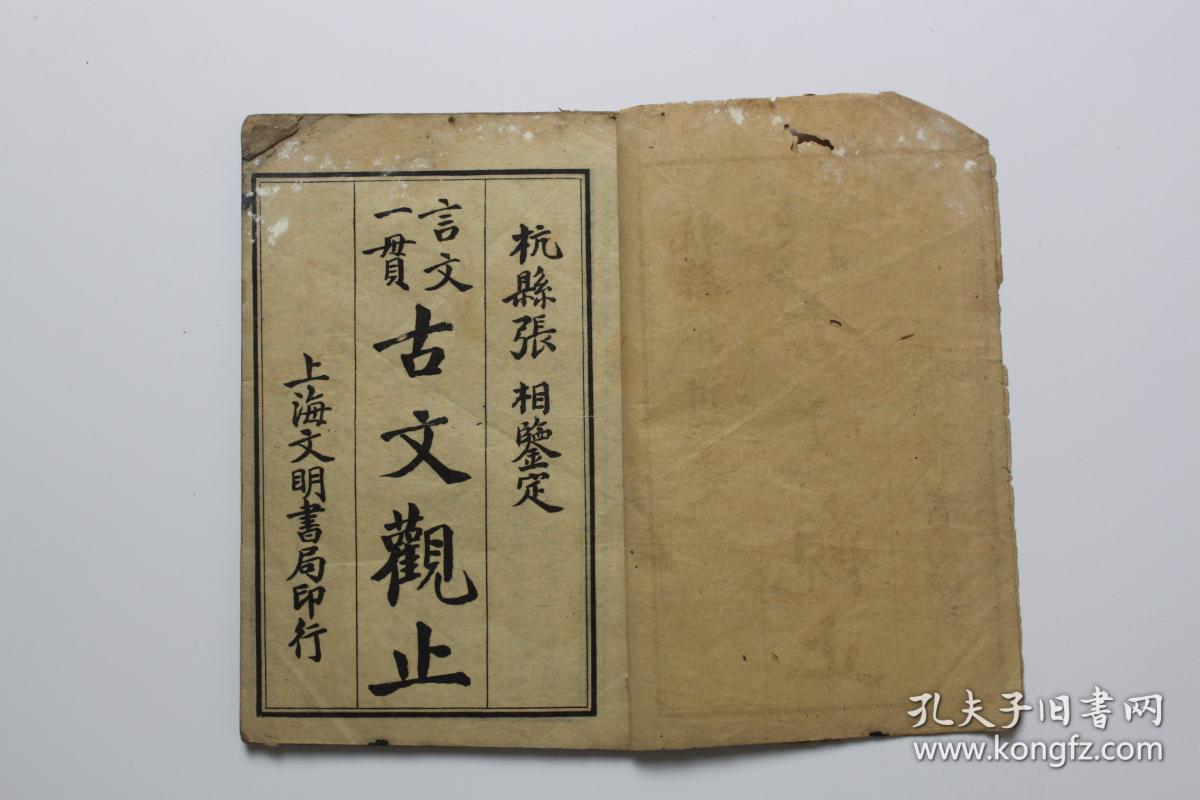 杭縣張相鑒定
言文
一貫
古文觀止
上海文明書局印行
孔夫子旧書网
www.kongfz.com